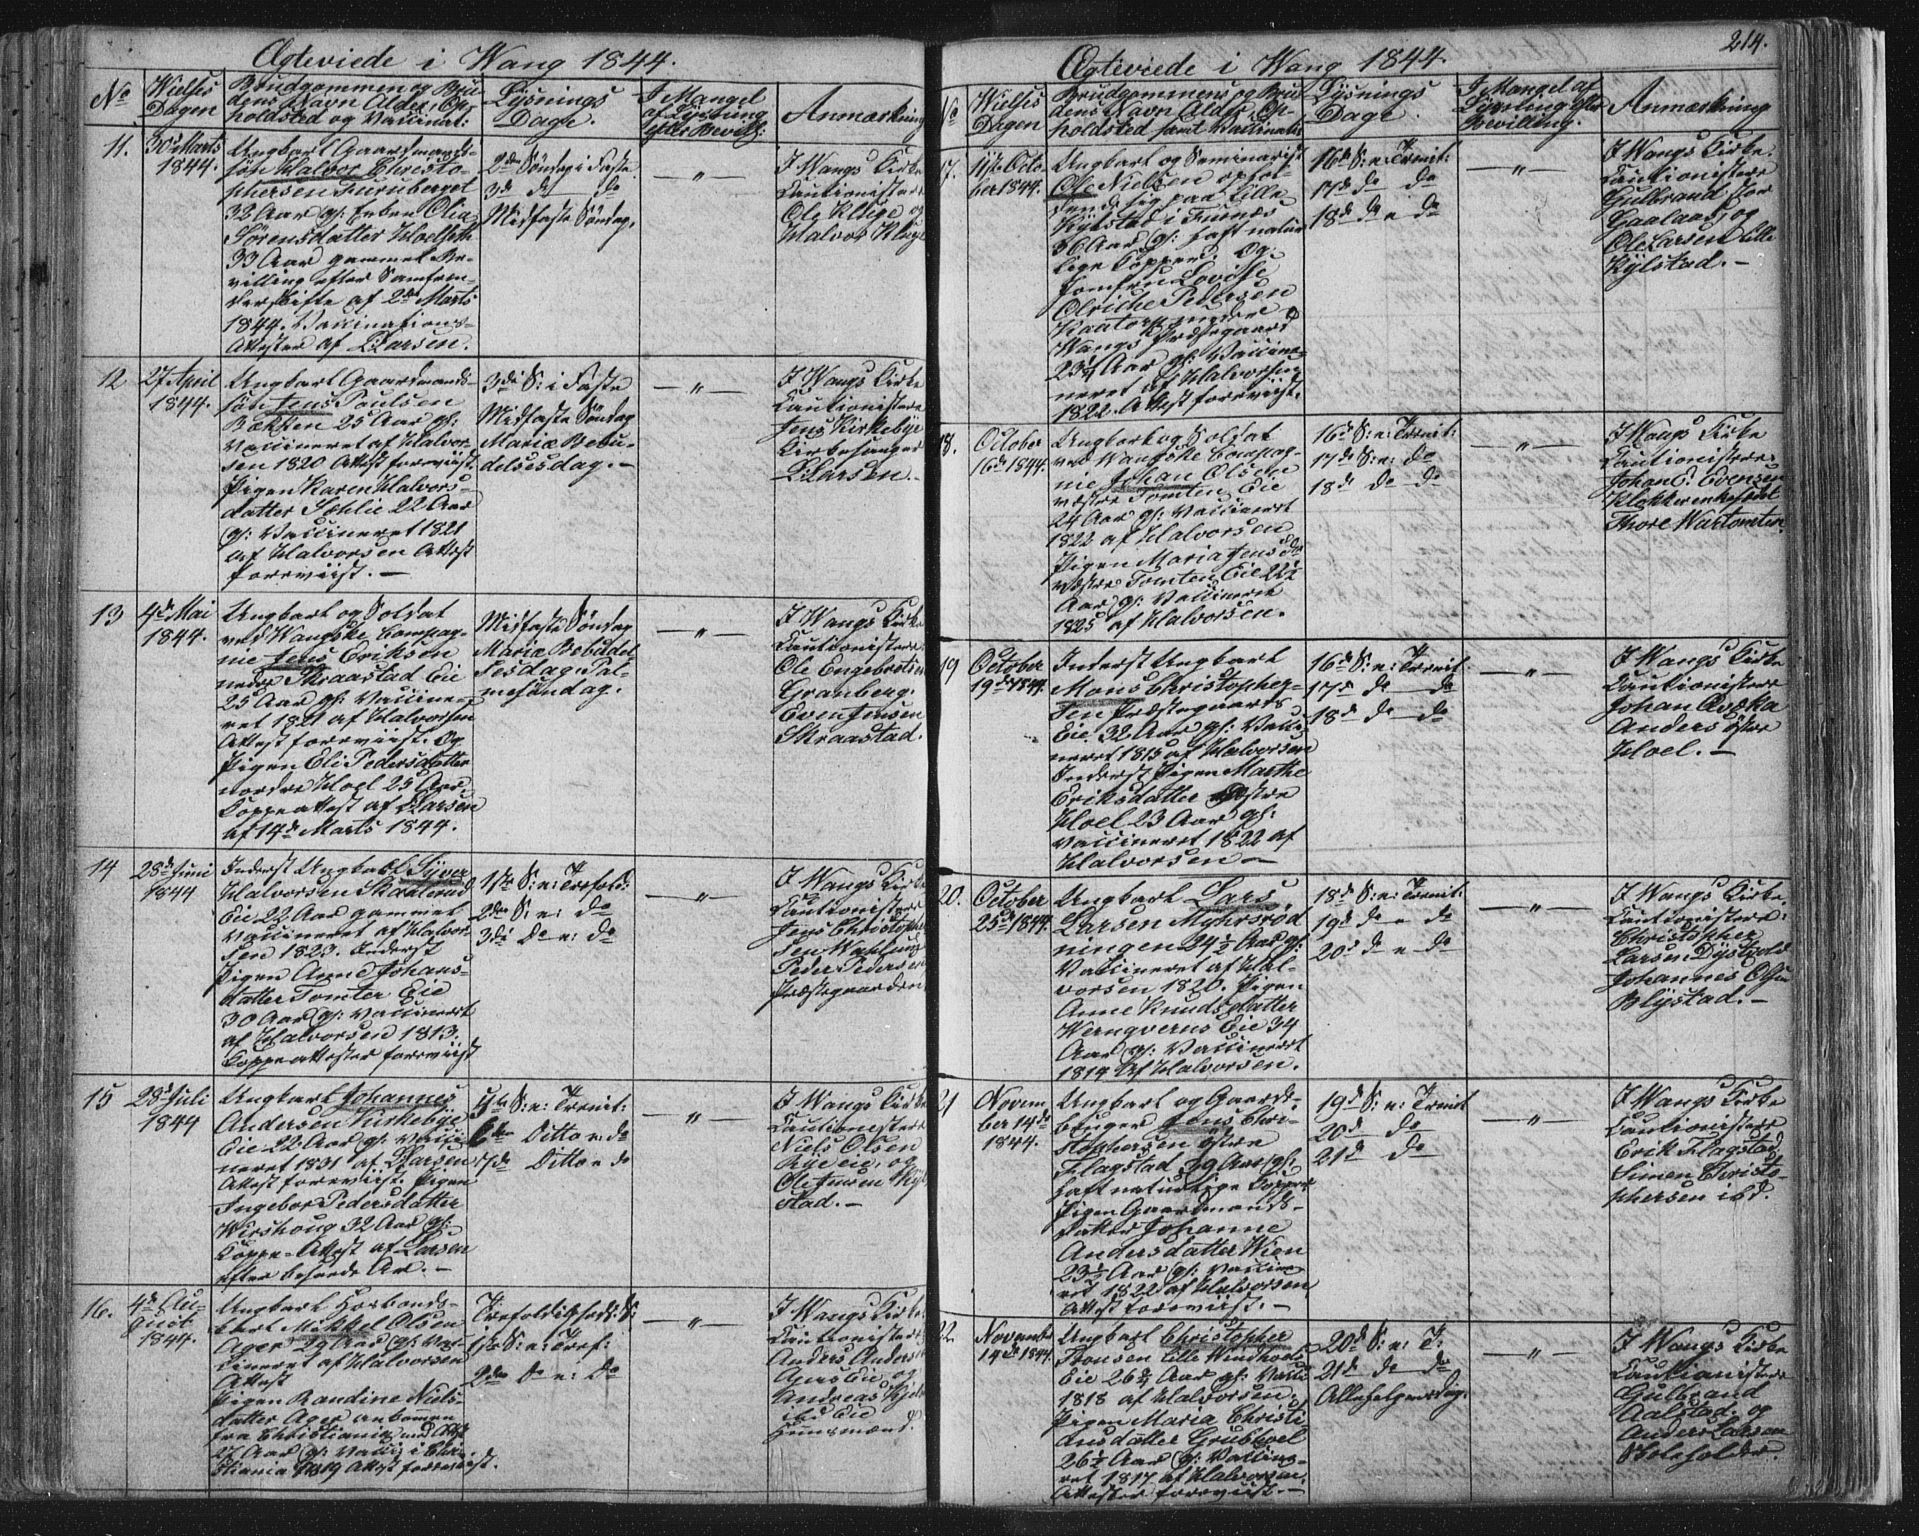 Ægteviede i Wang 1844.
No
Wielses Dagen
Brudgommen og Bru-
dens Navn Alder, Op-
holdsted og Vaccinat:
Lysnings
Dage.
I Mangel
af Lysning
efter Bevill:
Anmærkning
11.
30te Marts
1844.
Ungkarl Gaardmands-
søn Halvor Christo-
phersen Furuberget
32 Aar gl: Enken Olia
Sørensdatter Hoelseth
33 Aar gammel Be-
villing efter Samfrende-
Skifte af 2den Marts
1844. Vaccinations-
Attester af Larsen.
2den Søndag i Faste
3de do do
Midfaste Søndag.
— " —
I Wangs Kirke
Cautionister
Ole Kluge og
Halvor Kluge
12
27 April
1844.
Ungkarl Gaardmands-
søn Jens Poulsen
Bækken 25 Aar gl:
Vaccineret af Halvor-
sen 1820 Attest foreviist.
Pigen Karen Halvors-
datter Sæhlie 22 Aar
gl: Vaccineret 1821
af Halvorsen Attest
foreviist. —
3de S: i Faste
Midfaste Søndag
Mariæ Bebu-
delsesdag. —
— " —
I Wangs Kirke
Cautionistere
Jens Kirkebye
Kirkesanger
Larsen. —
13
4de Mai
1844.
Ungkarl og Soldat
ved Wangske Compag-
nie Jens Eriksen
nedre Skraastad Eie
25 Aar gl: Vaccine-
ret 1821 af Halvorsen
Attest foreviist. Og
Pigen Eli Pedersdatter
nordre Hoel 25 Aar,
Koppeattest af Larsen
af 14de Marts 1844.
Midfaste Søndag
Mariæ Bebudel-
sesdag. Pal-
mesøndag.
— " —
I Wangs Kirke
Cautionistere
Ole Engebretsen
Granberg.
Even Jensen
Skraastad.
14
28de Juni
1844
Inderst Ungkarl Syver
Halvorsen Skaalrud
Eie 22 Aar gammel
Vaccineret af Halvor-
sen 1823. Inderst
Pigen Anne Johans-
datter Tomter Eie
30 Aar gl: Vaccineret
af Halvorsen 1813.
Koppeattester foreviist
1ste S: e: Trefold:
2den S: e: do
3die Do e: Do
— " —
I Wangs Kirke
Cautionistere
Jens Christopher-
sen
Peder Pedersen
Præstegaarden
15
28de Juli
1844
Ungkarl Johannes
Andersen Kirkebye
Eie 22 Aar gl: Vacci-
neret 1831 af Larsen
Attest foreviist. Pigen
Ingebor Pedersdatter
Wirshoug 32 Aar gl:
Koppe-Attest af Larsen
efter
5te S: e: Trenit:
6te Ditto e: do
7de Ditto e do
— " —
I Wangs Kirke
Cautionistere
Niels Olsen
Rye eie, og
Ole Jensen Kyl-
stad. —
16.
4de Au-
gust
1844.
Ungkarl
Mikkel Olsen
Ager 29 Aar gl: Vac-
cineret af Halvorsen
Attest
Pigen Randine Niels-
datter Ager ankommen
fra Christiania med Attest
27 Aar gl: Vacci: i Chri-
stiania 1819 Attest foreviist.
Trefoldigheds S:
1ste S: e: Tref:
2den Do e: Do
— " —
I Wangs Kirke
Cautionistere
Anders Anders-
Agers Eie, og
Andreas
ibd Eie
Huusmænd.
214.
Ægteviede i Wang 1844.
No
Wielses
Dagen
Brudgommens og Bru-
dens Navn Alder, Op-
holdsted samt Vaccinatio
Lysnings
Dage.
I Mangel af
Lysning efter
Bevilling.
Anmærkning
17.
11te Octo-
ber 1844.
Ungkarl og Seminarist
Ole Nielsen ophol-
dende sig paa Lille
Kylstad i Furnes
36 Aar gl: haft natur-
lige Kopper. Og
Jomfru Lovise
Olriche Pedersen
Wangs Præstegaard
23¼ Aar gl: Vaccine-
neret af Halvorsen
1822. Attest foreviist.
16de S: e: Trenit:
17de do do
18de do e do
— " —
I Wangs Kirke.
Cautionistere
Gulbrand
Gaalaas, og
Ole Larsen Lille
Kylstad. —
18.
October
16de 1844.
Ungkarl og Soldat
ved Wangske Compag-
nie Johan Olsen
vestre Tomten Eie
24 Aar gl: Vaccineret
1822 af Halvorsen
Pigen Maria Jens do
vestre Tomten Eie 22½
Aar gl: Vaccineret
1825 af Halvorsen.
16de S: e: Trenit:
17de S: e: do
18de do do
— " —
I Wangs Kirke
Cautionistere
Johan P: Evensen
Thore Wartomten
19
October
19de 1844.
Inderst Ungkarl
Mons Christopher-
sen Præstegaards
Eie 32 Aar gl: Vacci-
neret 1815 af Halvorsen
Inderst Pigen Marthe
Eriksdatter østre
Hoel 23 Aar gl:
Vaccineret 1822 af
Halvorsen —
16de S: e: Trenit.
17de do do
18de do do
— " —
I Wangs Kirke
Cautionistere
Johan
Anders østre
Hoel. —
20.
October
25de 1844.
Ungkarl Lars
Larsen Myhrsrød-
ningen 24½ Aar gl:
Vaccineret af Hal-
vorsen 1820. Pigen
Anne Knudsdatter
Wernqverns Eie 34
Aar gl: Vaccineret
1819 af Halvorsen.
18de S: e: Trenit:
19de do e do
20de do e do
— " —
I Wangs Kirke
Cautionistere:
Christopher
Larsen Dystvold
Johannes Olsen
Blystad. —
21
Novem
ber 14de
1844.
Ungkarl og Gaard-
bruger Jens Chri-
stophersen østre
Flagstad 39 Aar gl:
haft naturlige Kopper
Pigen Gaardmands-
datter Johanne
Andersdatter Wien
23½ Aar gl: Vaccine-
ret 1822 af Halvorsen
Attest foreviist. —
19de S: e: Trenit
20de do
21de do
— " —
I Wangs Kirke
Cautionistere
Erik Flagstad
Simen Christo-
phersen ibd.
22.
Novemb
14de 1844.
Ungkarl Christopher
Lille Windhols
Eie 26¾ Aar gl: Vacci
1818 af Halvorsen.
Pigen Maria Christi
ansdatter Grubhoel
26½ Aar gl: Vaccine-
ret 1817 af Halvorsen.
Attester foreviist. —
20de S: e: T:
21de do do
Allehelgensdag.
— " —
I Wangs Kirke
Cautionistere
Gulbrand
Aalstad. og
Anders Larsen